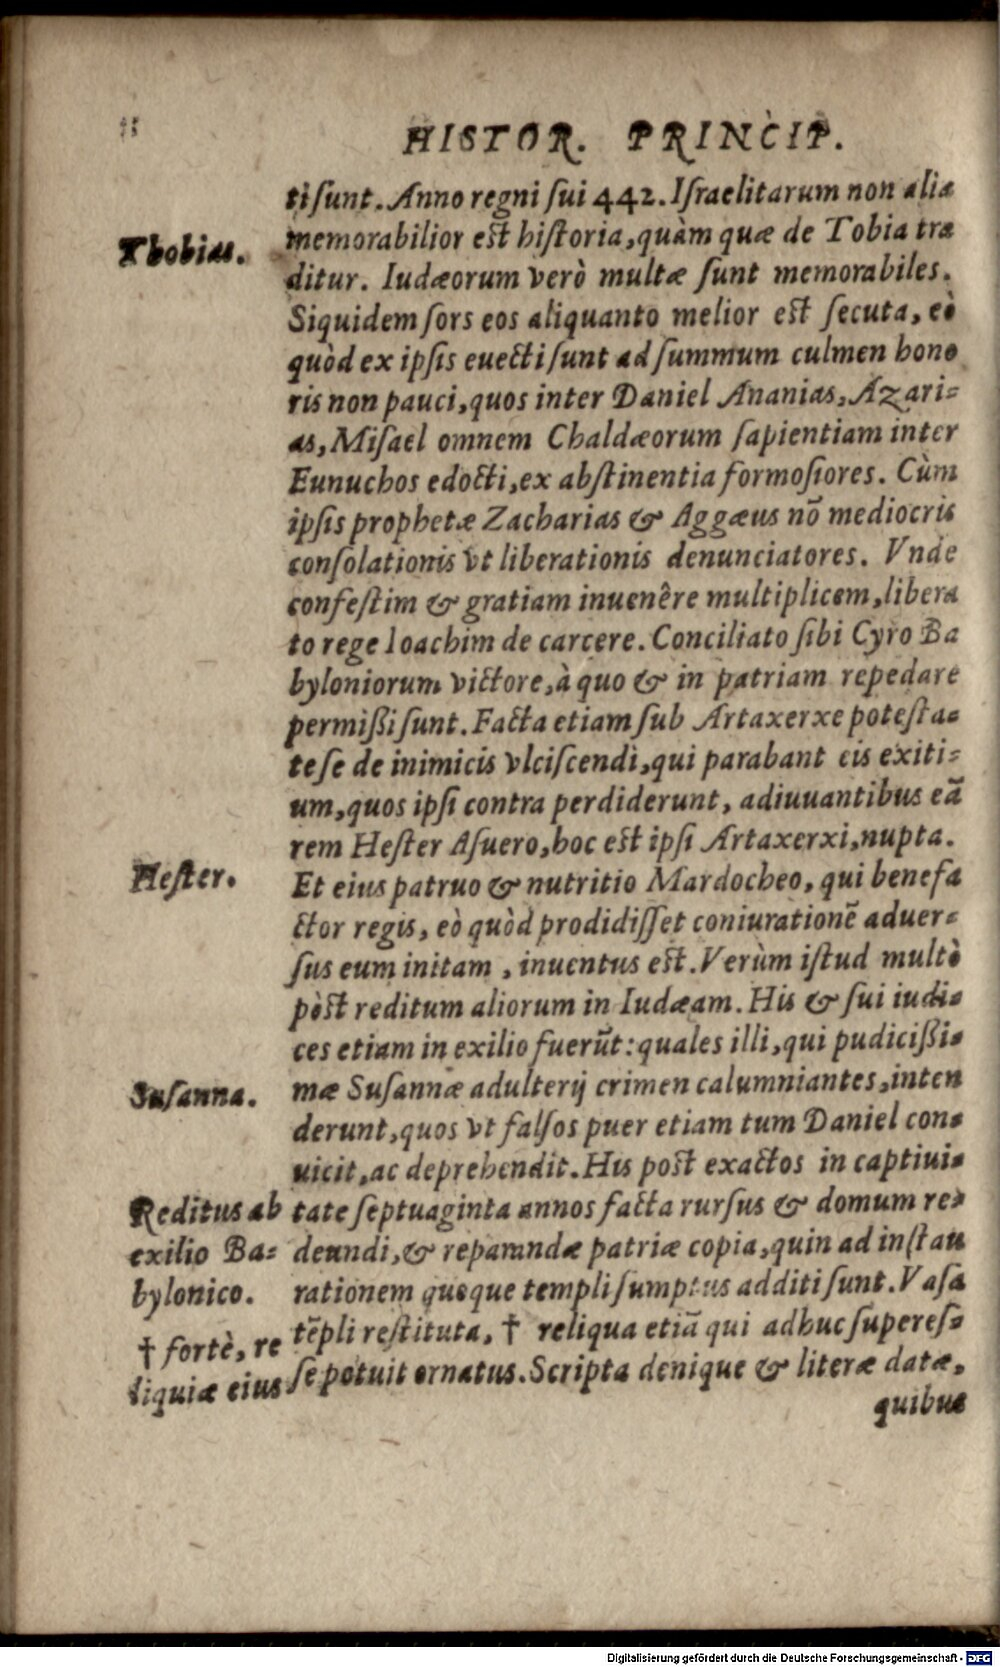 HISTOR. PRINCIP.
ti sunt. Anno regni sui 442. Israelitarum non aliæ
Thobias.
memorabilior est historia, quàm quæ de Tobia tra
ditur. Iudæorum verò multæ sunt memorabiles.
Siquidem sors eos aliquanto melior est secuta, eò
quòd ex ipsis euecti sunt ad summum culmen hono
ris non pauci, quos inter Daniel Ananias, Azari-
as, Misael omnem Chaldæorum sapientiam inter
Eunuchos edocti, ex abstinentia formosiores. Cùm
ipsis prophetæ Zacharias & Aggæus nō mediocris
consolationis vt liberationis denunciatores. Vnde
confestim & gratiam inuenêre multiplicem, libera
to rege Ioachim de carcere. Conciliato sibi Cyro Ba
byloniorum victore, à quo & in patriam repedare
permißi sunt. Facta etiam sub Artaxerxe potesta-
te se de inimicis vlciscendi, qui parabant eis exiti-
um, quos ipsi contra perdiderunt, adiuuantibus eā
rem Hester Asuero, hoc est ipsi Artaxerxi, nupta.
Hester.
Et eius patruo & nutritio Mardocheo, qui benefa
ctor regis, eò quòd prodidisset coniurationē aduer-
sus eum initam, inuentus est. Verùm istud multò
pòst reditum aliorum in Iudæam. His & sui iudi-
ces etiam in exilio fuerūt: quales illi, qui pudicißi-
Susanna.
mæ Susannæ adulterij crimen calumniantes, inten
derunt, quos vt falsos puer etiam tum Daniel con-
uicit, ac deprehendit. His post exactos in captiui-
Reditus ab
exilio Ba-
bylonico.
tate septuaginta annos facta rursus & domum re-
deundi, & reparandæ patriæ copia, quin ad instau
rationem quoque templi sumptus additi sunt. Vasa
tēpli restituta, † reliqua etiā qui adhuc superes-
† fortè, re
liquiæ eius
se potuit ornatus. Scripta denique & literæ datæ,
quibus
Digitalisierung gefördert durch die Deutsche Forschungsgemeinschaft - DFG